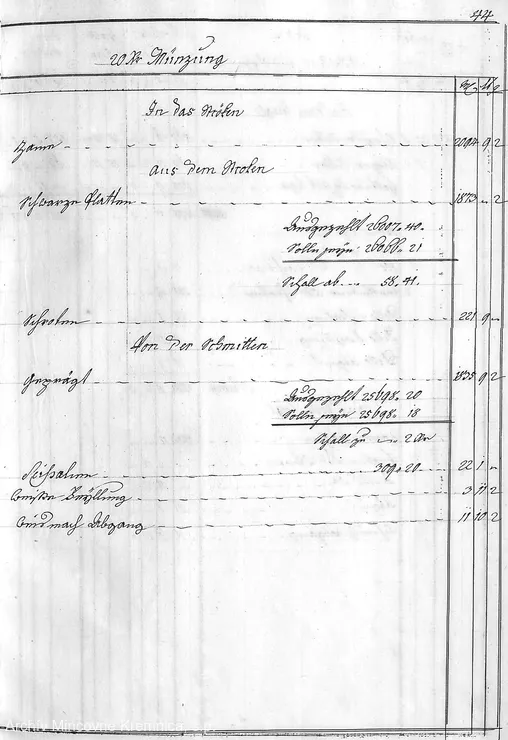 44
20 Xr Münzung
In das Ströken
Zainn 2094 9 2
aus dem Stroken
Schwarze Platten 1873 - 2
Ausgezehlt 26007 . 40 .
Solln seyn 26066 . 21
Schall ab 58 . 41 .
Schroten 221 9 -
Von der Schmitten
Geprägt 1835 9 2
Ausgezehlt 25698 . 20
Solln seyn 25698 . 18
Schall zu 2 Xr
309 . 20 . 22 1 -
3 11 2
Abgang 11 10 2
Archív Mincovne Kremnica